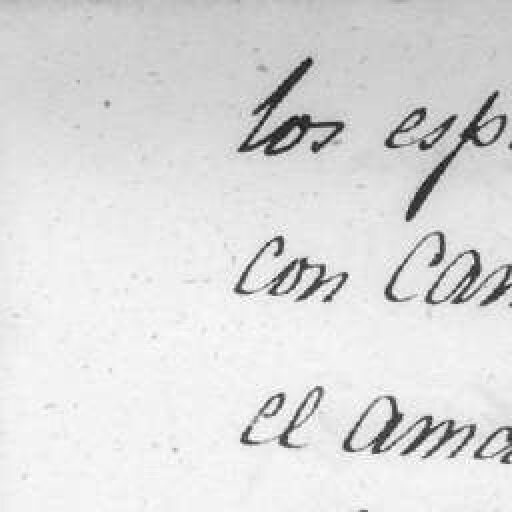 los esp
con Can
el ama